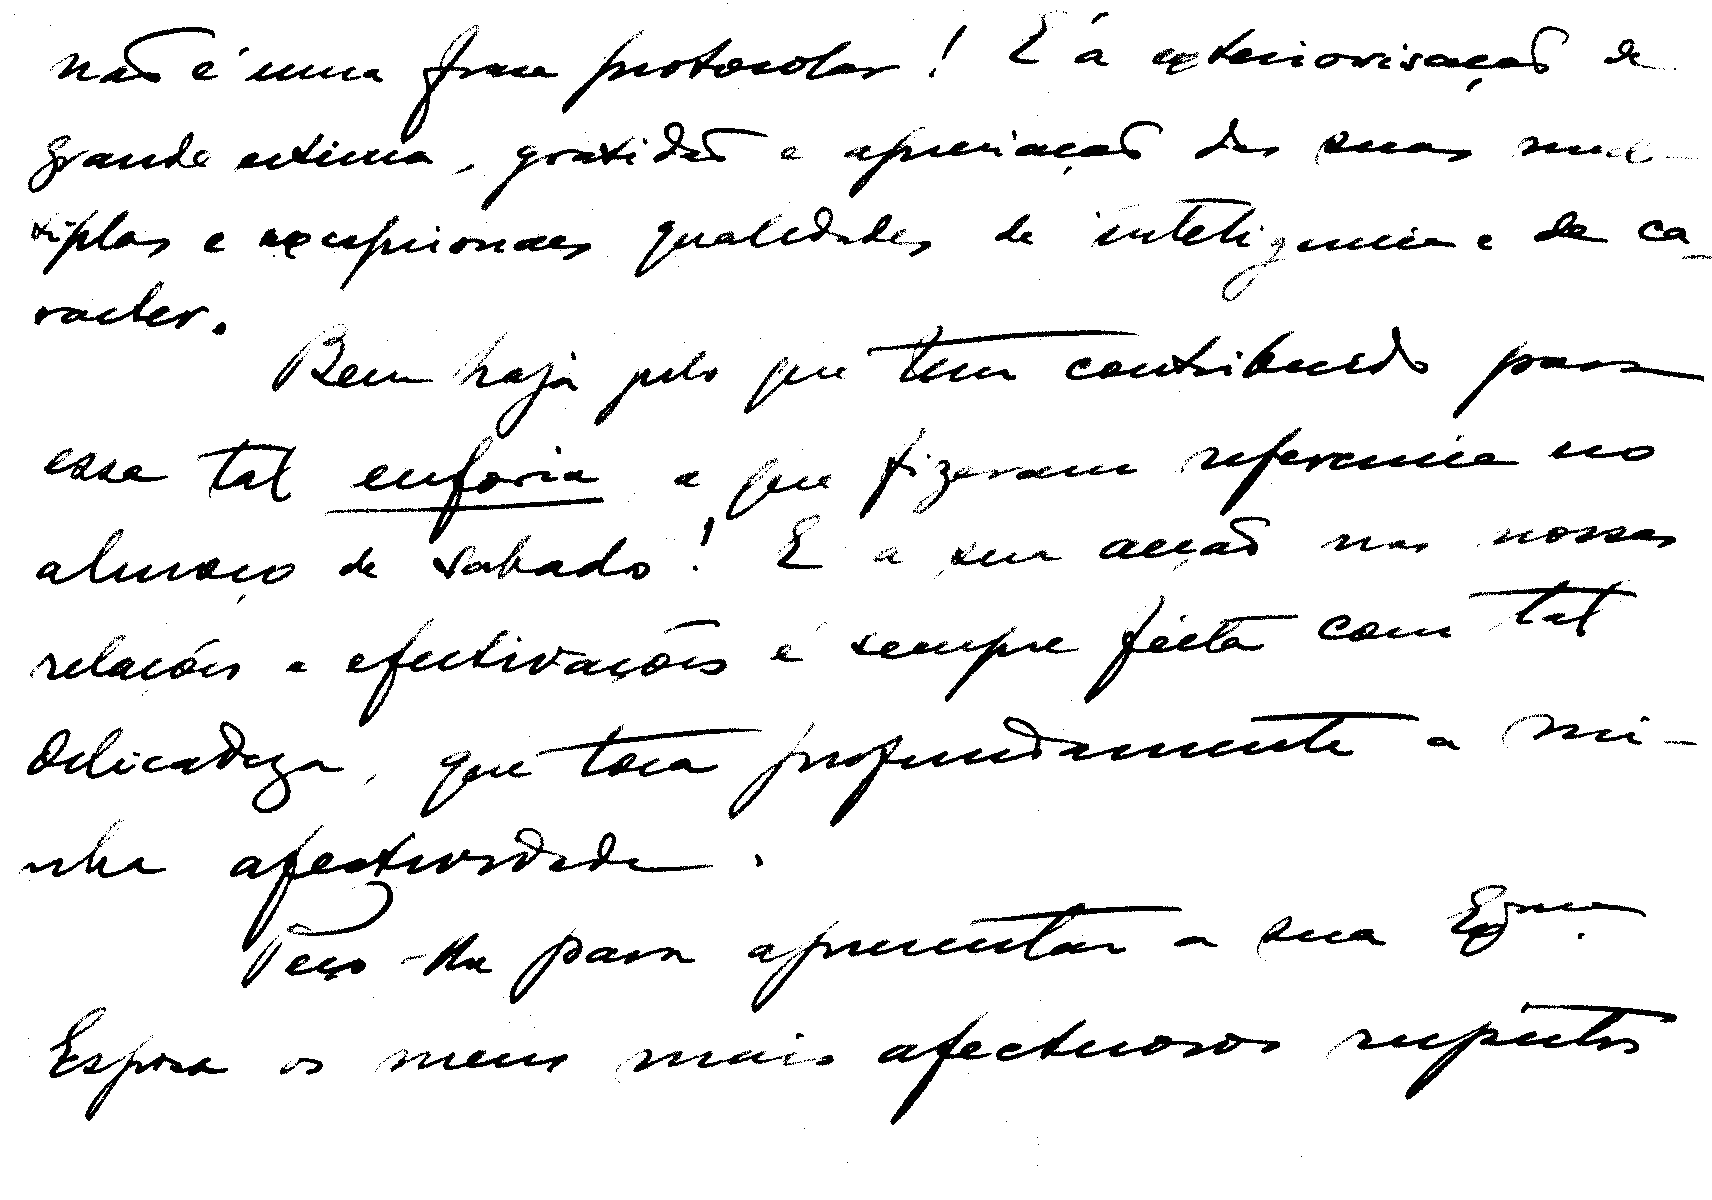 não é uma frase protocolar! É a exteriorisação de
grande estima, gratidão e apreciação das suas mul-
tiplas e excepcionaes qualidades de inteligencia e de ca-
racter.
Bem haja pelo que tem contribuido para
essa tal euforia a que fizeram referencia no
almoço de sabado! E a sua acção nas nossas
relações e efectivações é sempre feita com tal
delicadeza, que toca profundamente a mi-
nha afectividade.
Peço-lhe para apresentar a sua Exma.
Esposa os meus mais afectuosos respeitos